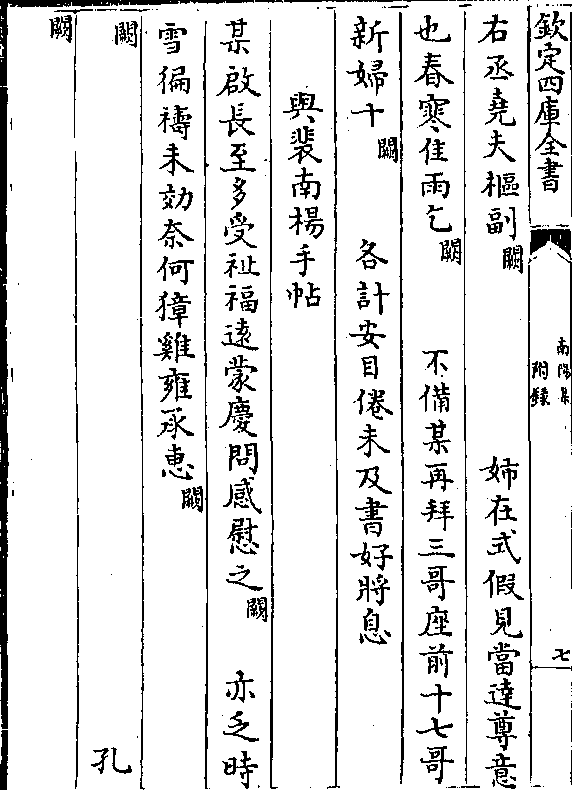 欽定四庫全書
南陽集
附錄
七
右丞堯夫樞副闕 姊在式假見當達尊意
也春寒佳雨乞闕 不備某再拜三哥座前十七哥
新婦十闕 各計安目倦未及書好將息
與裴南楊手帖
某啟長至多受祉福遠蒙慶問感慰之闕 亦乏時
雪徧禱未効奈何獐雞雍承惠闕
闕 孔
闕